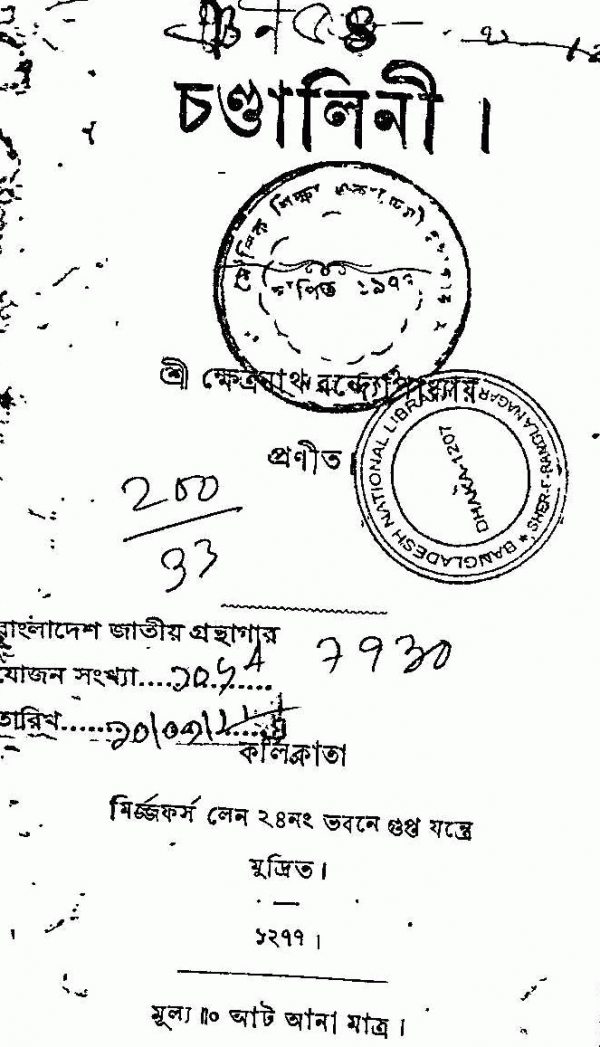 চণ্ডালিনী ।
শ্রী ক্ষেত্রনাথ বন্দ্যোপাধ্যায়
প্রণীত ।
BANGLADESH NATIONAL LIBRARY
SHER-E-BANGLANAGAR
DHAKA-1207
200
93
বাংলাদেশ জাতীয় গ্রন্থাগার
7930
যোজন সংখ্যা
তারিখ
কলিকাতা
মির্জ্জফর্স লেন ২৪নং ভবনে গুপ্ত যন্ত্রে
মুদ্রিত ।
১২৭৭ ।
মূল্য ॥০ আট আনা মাত্র ।